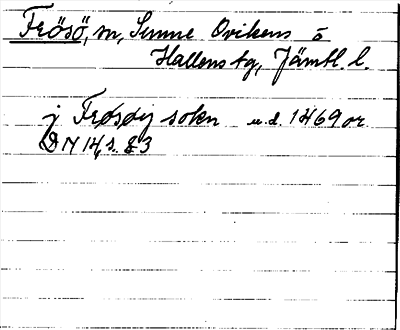 Frösö, sn, Sunne Ovikens o
Hallens tg, Jämtl. l.
j Frøsøy sokn u.d. 1469 or.
DN 14, s. 83